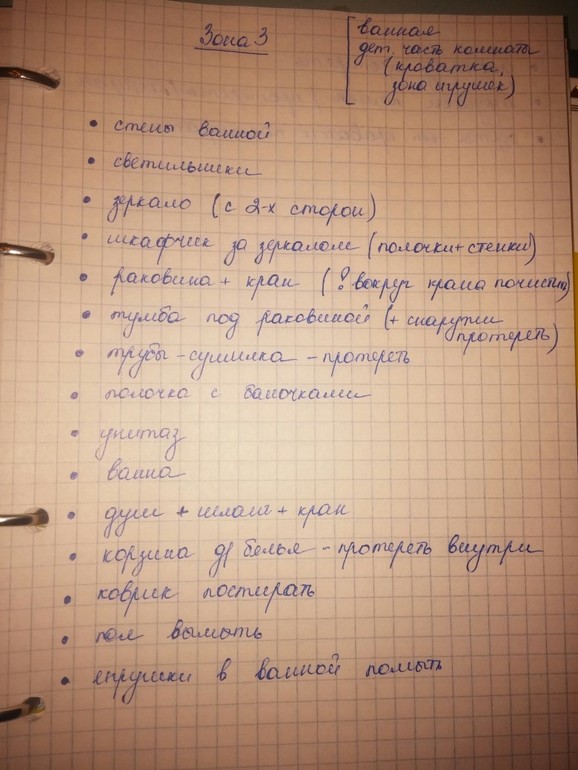 Зона 3
ванная
дет. часть комнаты
(кроватка,
зона игрушек)
• стены ванной
• светильники
• зеркало (с 2-х сторон)
• шкафчик за зеркалом (полочки + стенки)
• раковина + кран (! вокруг крана почистить)
• тумба под раковиной (+ снаружи
протереть)
• трубы - сушилка - протереть
• полочка с баночками
• унитаз
• ванна
• душ + шланг + кран
• корзина д/ белья - протереть внутри
• коврик постирать
• пол вымыть
• игрушки в ванной помыть